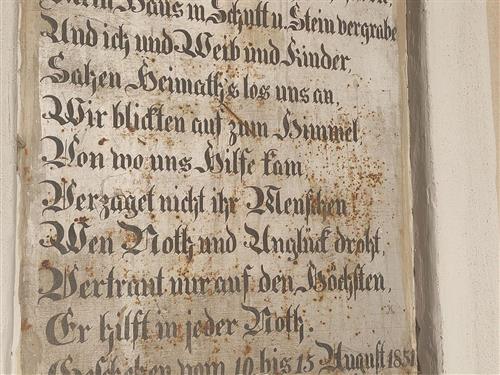 Haus in Schutt u. Stein vergrabe
Und ich und Weib und Kinder,
Sahen Heimathslos uns an,
Wir blickten auf zum Himmel,
Von wo uns Hilfe kam
Verzaget nicht ihr Menschen
Wen Noth und Unglück droht,
Vertraut nur auf den Höchsten,
Er hilft in jeder Noth.
Geschehen vom 10 bis 15 August 1851